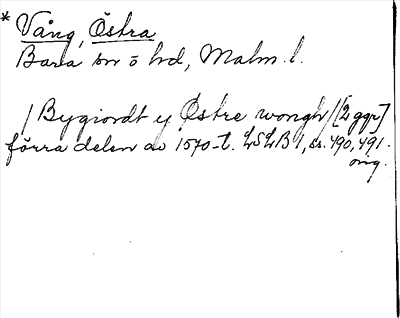 * Vång, Östra
Bara sn o hd, Malm. l.
/ Bygiordt y Østre wongh / [2 ggr]
förra delen av 1570-t. LSLB 1, ss. 490, 491.
orig.